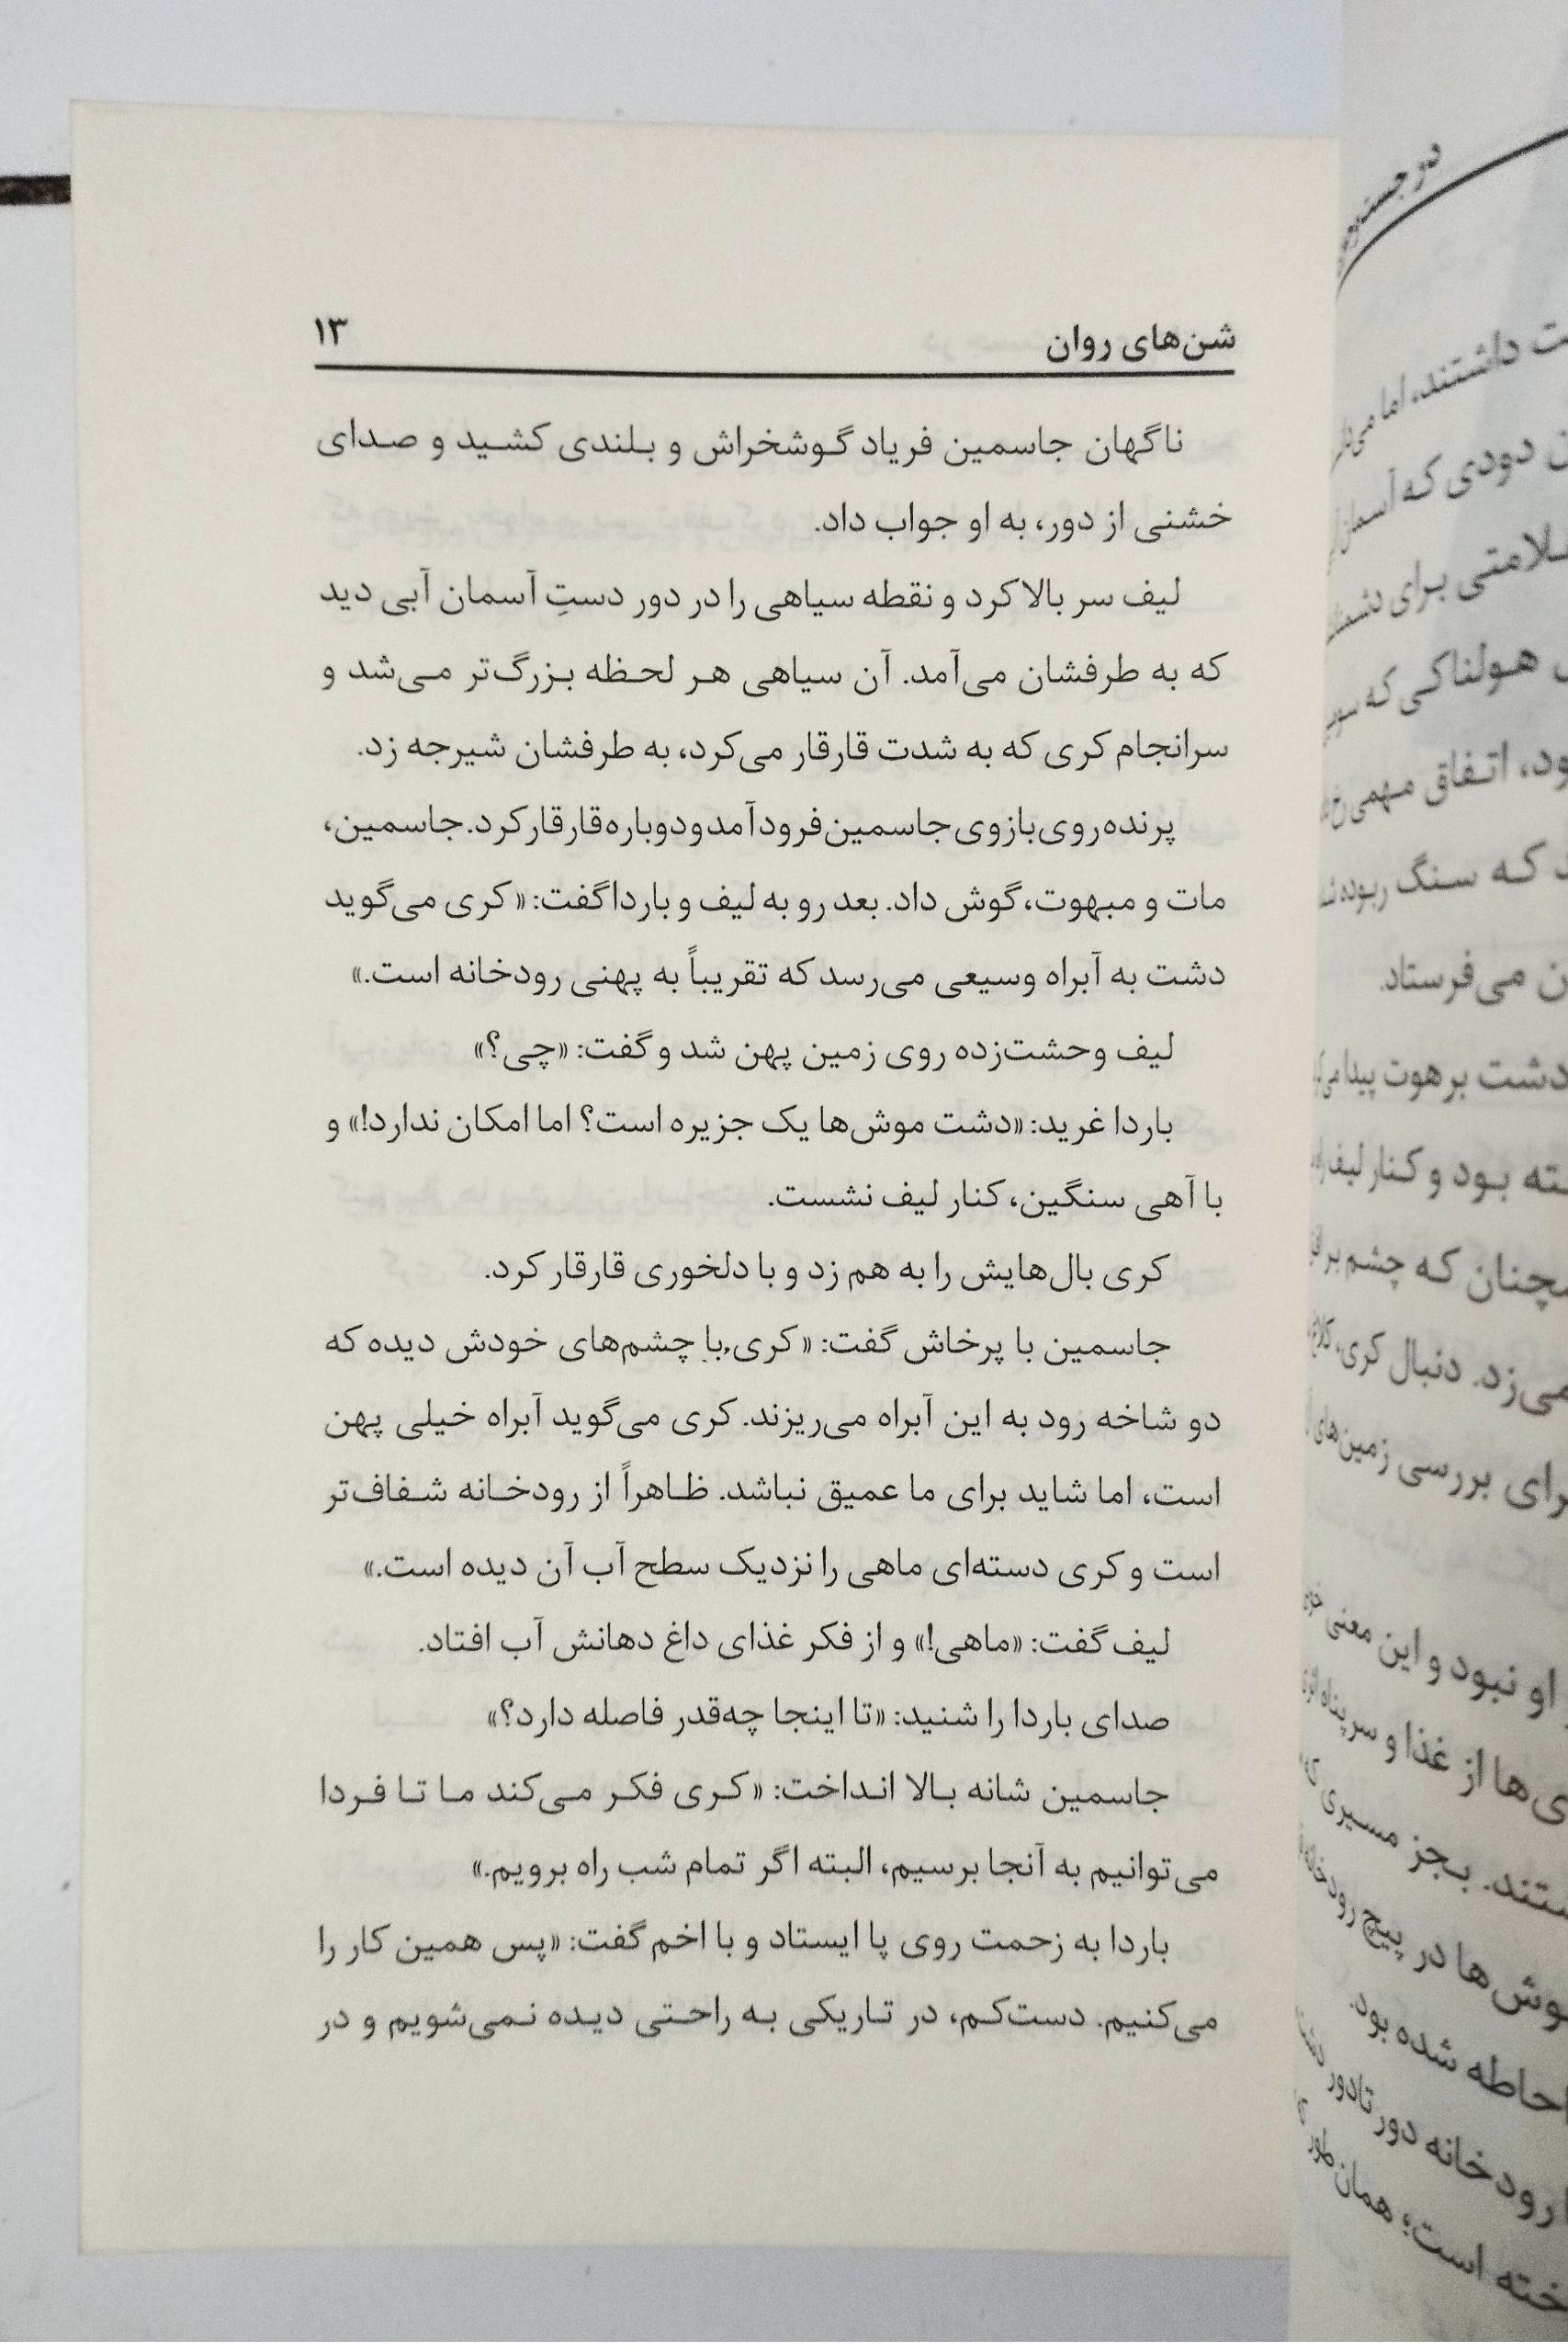 شن‌های روان ۱۳
ناگهان جاسمین فریاد گوشخراش و بلندی کشید و صدای
خشنی از دور، به او جواب داد.
لیف سر بالا کرد و نقطه سیاهی را در دور دستِ آسمان آبی دید
که به طرفشان می‌آمد. آن سیاهی هر لحظه بزرگ‌تر می‌شد و
سرانجام کری که به شدت قارقار می‌کرد، به طرفشان شیرجه زد.
پرنده روی بازوی جاسمین فرود آمد و دوباره قارقار کرد. جاسمین،
مات و مبهوت، گوش داد. بعد رو به لیف و باردا گفت: «کری می‌گوید
دشت به آبراه وسیعی می‌رسد که تقریباً به پهنی رودخانه است.»
لیف وحشت‌زده روی زمین پهن شد و گفت: «چی؟»
باردا غرید: «دشت موش‌ها یک جزیره است؟ اما امکان ندارد!» و
با آهی سنگین، کنار لیف نشست.
کری بال‌هایش را به هم زد و با دلخوری قارقار کرد.
جاسمین با پرخاش گفت: «کری، با چشم‌های خودش دیده که
دو شاخه رود به این آبراه می‌ریزند. کری می‌گوید آبراه خیلی پهن
است، اما شاید برای ما عمیق نباشد. ظاهراً از رودخانه شفاف‌تر
است و کری دسته‌ای ماهی را نزدیک سطح آب آن دیده است.»
لیف گفت: «ماهی!» و از فکر غذای داغ دهانش آب افتاد.
صدای باردا را شنید: «تا اینجا چه‌قدر فاصله دارد؟»
جاسمین شانه بالا انداخت: «کری فکر می‌کند ما تا فردا
می‌توانیم به آنجا برسیم، البته اگر تمام شب راه برویم.»
باردا به زحمت روی پا ایستاد و با اخم گفت: «پس همین کار را
می‌کنیم. دست‌کم، در تاریکی به راحتی دیده نمی‌شویم و در
داشتند، اما
دودی که
برای
هولناکی که
اتفاق مهمی
که سنگ ربوده
می‌فرستاد.
دشت برهوت پیدا
بود و کنار لیف
که چشم بر
دنبال کری،
بررسی زمین‌های
او نبود و این معنی
از غذا و سرپناه
بجز مسیری
در پیچ
احاطه شده بود.
رودخانه دور تا دور
است؛ همان